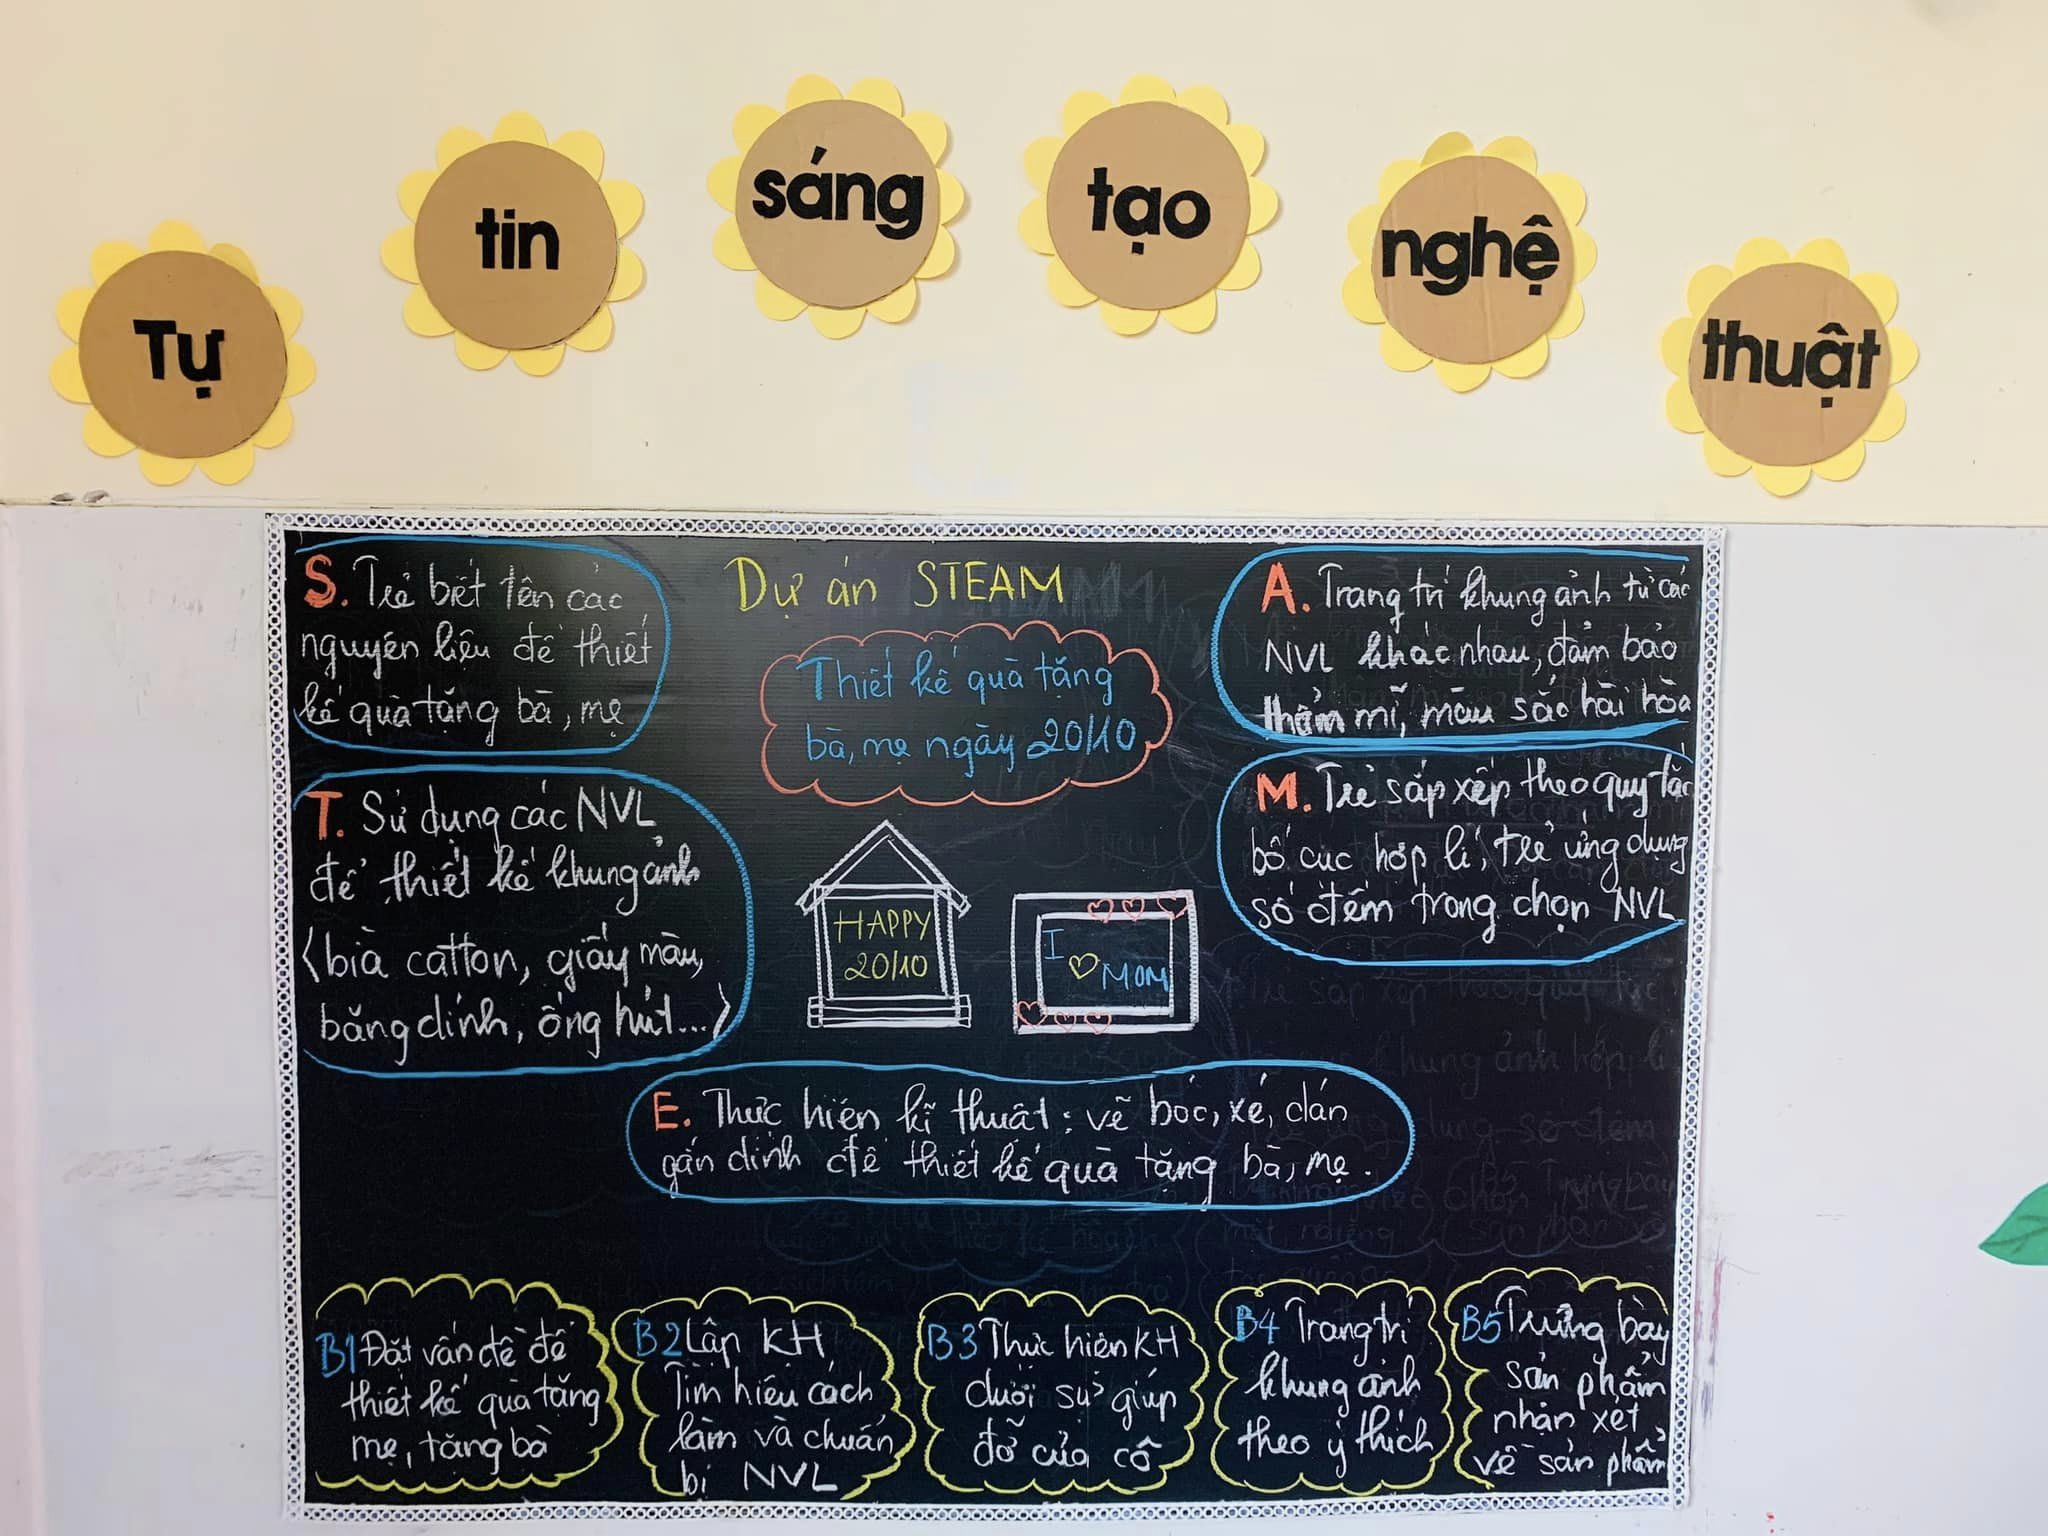 Tự tin sáng tạo nghệ thuật
Dự án STEAM
Thiết kế quà tặng
bà, mẹ ngày 20/10
S. Trẻ biết tên các
nguyên liệu để thiết
kế quà tặng bà, mẹ
T. Sử dụng các NVL
để thiết kế khung ảnh
(bìa catton, giấy màu,
băng dính, ống hút...)
A. Trang trí khung ảnh từ các
NVL khác nhau, đảm bảo
thẩm mĩ, màu sắc hài hòa
M. Trẻ sắp xếp theo quy tắc
bố cục hợp lí, trẻ ứng dụng
số đếm trong chọn NVL
HAPPY
20/10
I
MOM
E. Thực hiện kĩ thuật: vẽ bóc, xé, dán
gắn dính để thiết kế quà tặng bà, mẹ.
B1 Đặt vấn đề để
thiết kế quà tặng
mẹ, tặng bà
B2 Lập KH
Tìm hiểu cách
làm và chuẩn
bị NVL
B3 Thực hiện KH
dưới sự giúp
đỡ của cô
B4 Trang trí
khung ảnh
theo ý thích
B5 Trưng bày
sản phẩm
nhận xét
về sản phẩm